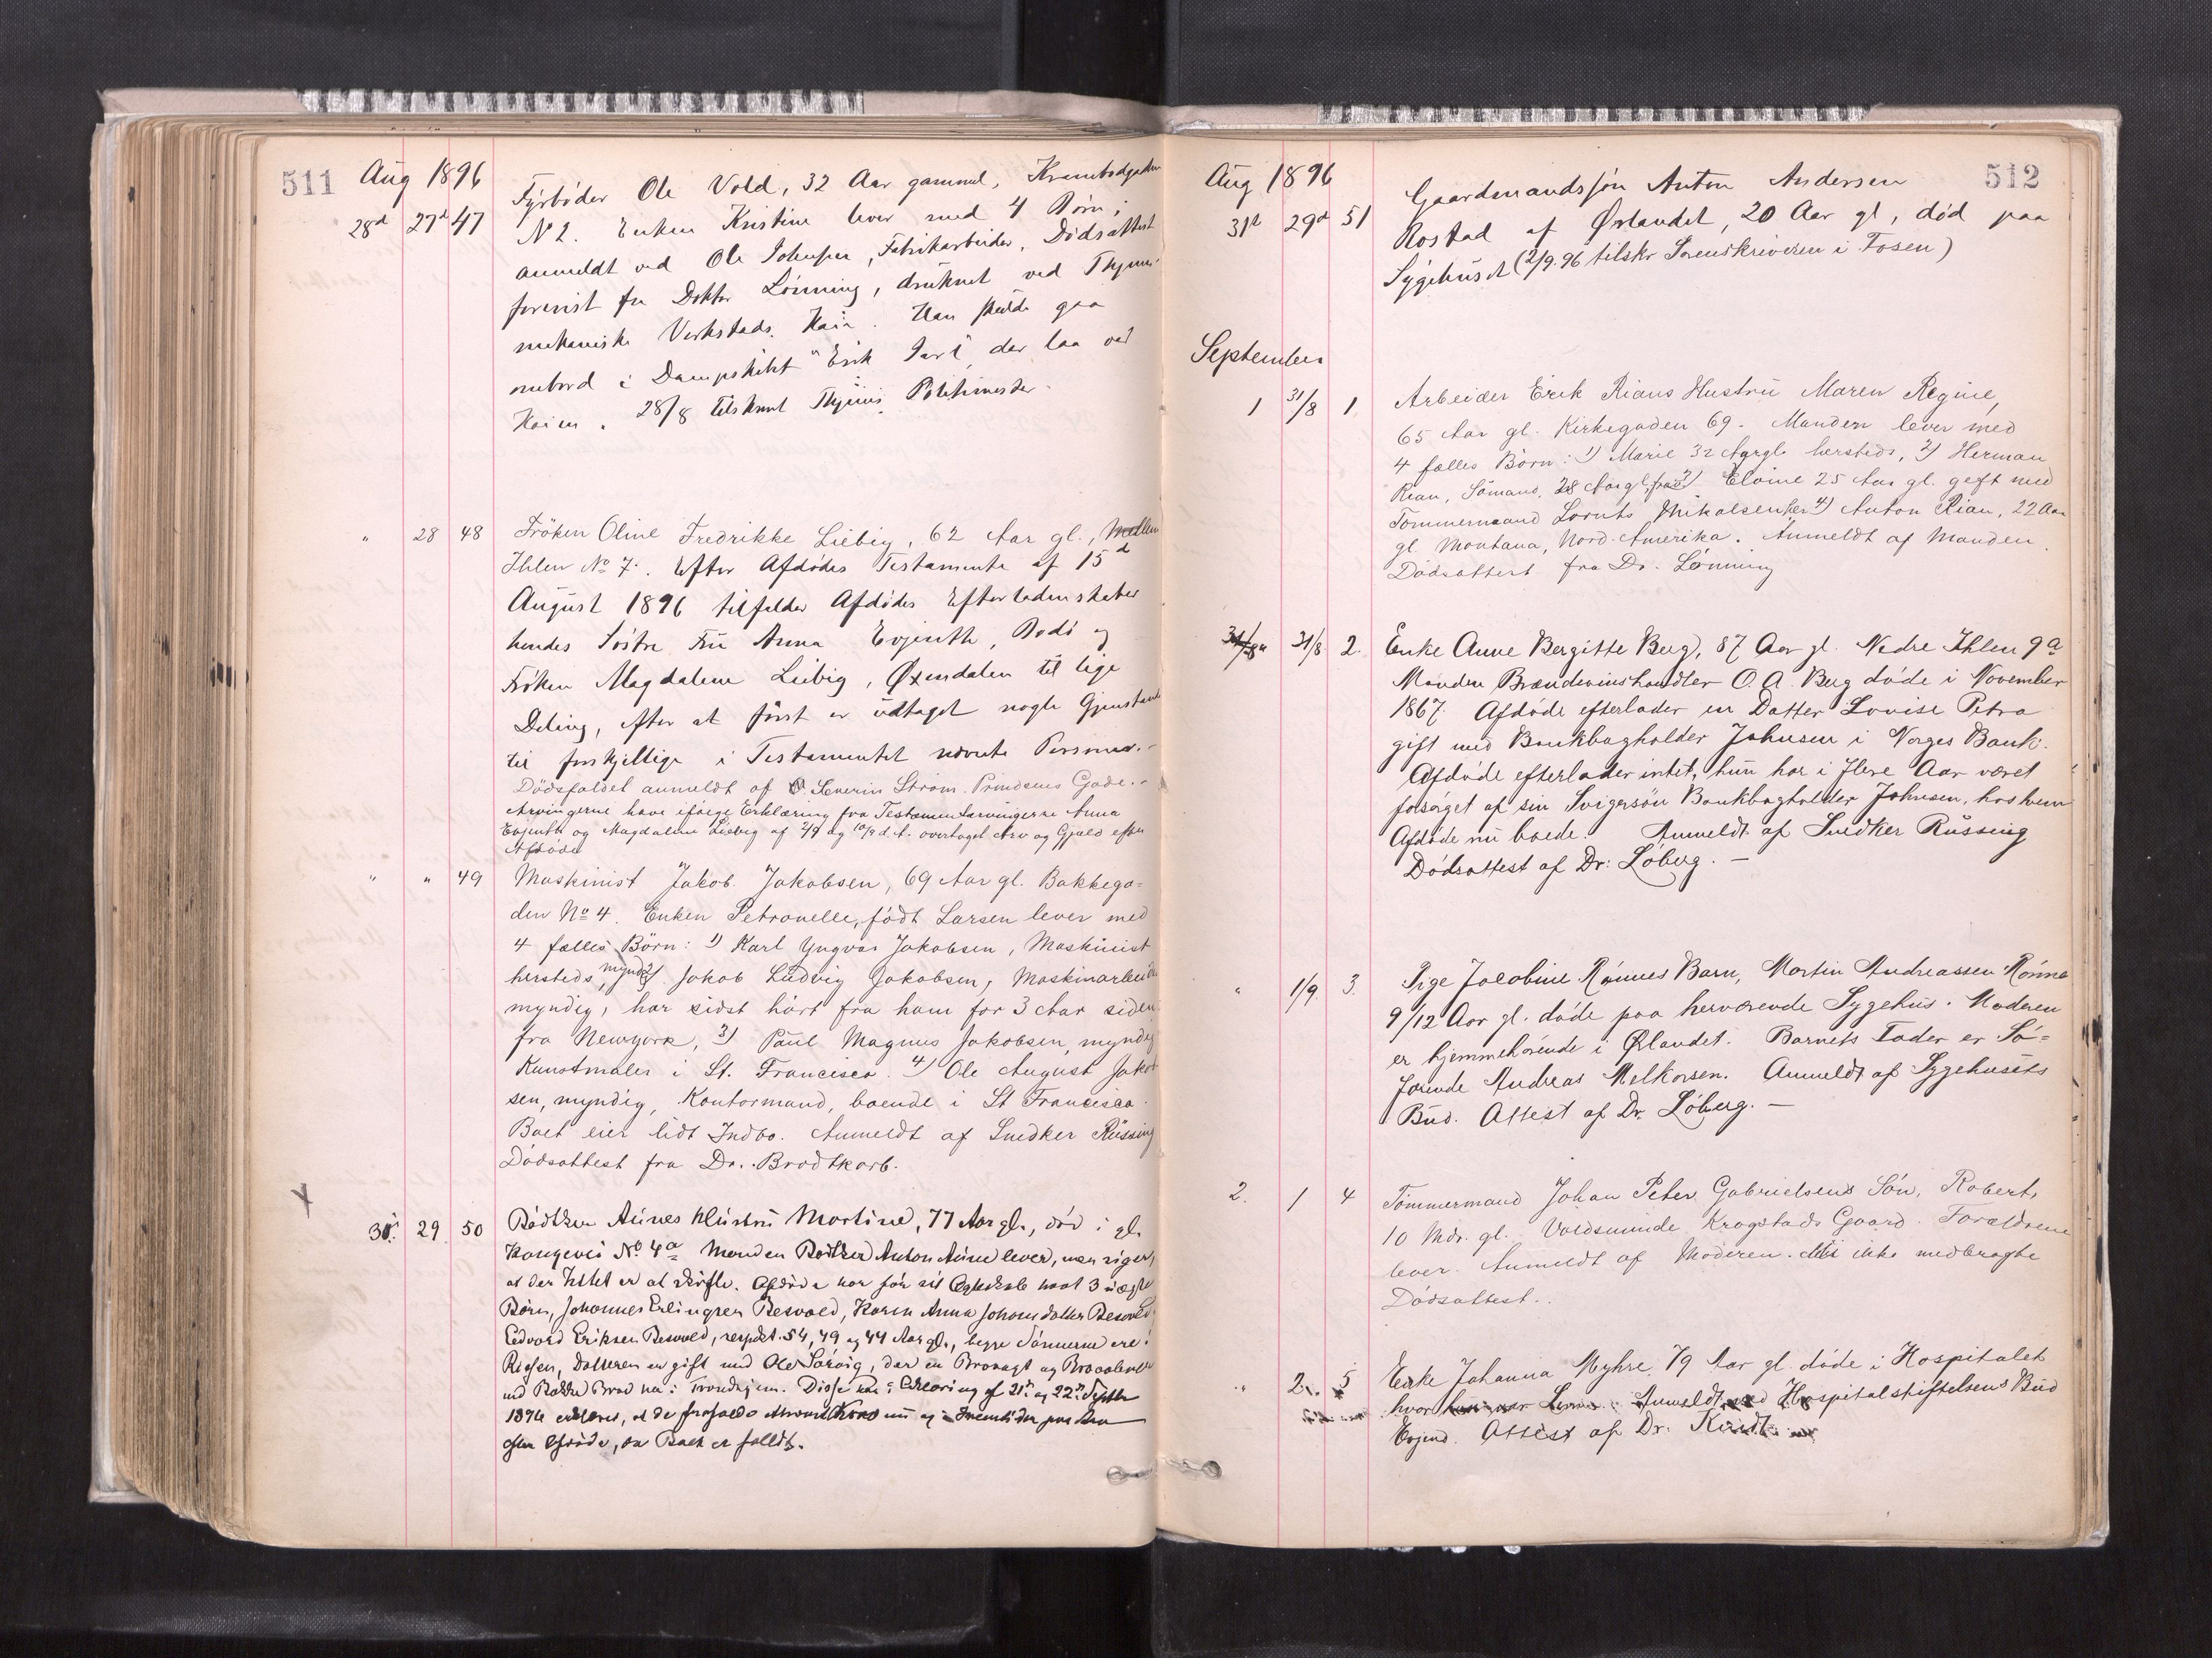 511 Aug 1896
28d 27d 47 Fyrböder Ole Vold, 32 Aar gammel, Krambodgaden
N 2. Enken Kristine lever med 4 Börn;
anmeldt ved Ole Johnsen, Fabrikarbeider. Dödsattest
forevist fra Doktor Lönning, druknet ved Thjems
mekaniske Verksteds Kai. Han skulde gaa
ombord i Dampskibet "Erik Jarl", der laa ved
Kaien. 28/8 tilskrevet Thjems Politimester
" 28 48 Fröken Oline Fredrikke Liebig, 62 Aar gl., Mellem
Ihlen No 7. Efter Afdödes Testamente af 15d
August 1896 tilfalder Afdödes Efterladenskaber
hendes Söstre Fru Anna Evjenth, Bodö og
Fröken Magdalene Liebig, Øxendalen til lige
Deling, efter at först er udtaget nogle Gjenstande
til forskjellige i Testamentet nævnte Personer.
Dödsfaldet anmeldt af O. Severin Ström Prindsens Gade.
Arvingerne have ifölge Erklæring fra Testamentarvingerne Anna
Evjenth og Magdalene Liebig af 2/9 og 10/9 d.A. overtaget Arv og Gjæld efter
Afdöde
" " 49 Maskinist Jakob Jakobsen, 69 Aar gl. Bakkega=
den No 4. Enken Petronelle, födt Larsen lever med
4 fælles Börn: 1) Karl Yngvar Jakobsen, Maskinist
hersteds, mynd. 2) Jakob Ludvig Jakobsen, Maskinarbeider
myndig, har sidst hört fra ham for 3 Aar siden
fra Newyork, 3) Paul Magnus Jakobsen, myndig
Kunstmaler i St. Francisco. 4) Ole August Jakob
sen, myndig, Kontormand, boende i St Francisco.
Boet eier lidt Indbo. Anmeldt af Snedker Rüssing
Dödsattest fra Dr. Brodtkorb.
31. 29 50 Rödtker Aunes Hustru Martine, 77 Aar gl., död i gl.
Kongevei No 4a Manden Anton Aune lever, men siger,
at der Intet er at skifte. Afdöde har för sit Ægteskab havt 3 uægte
Börn, Johannes Erlingsen Resvold, Karen Anna Johansdatter Resvold
Edvard Eriksen Resvold, respekt. 54, 49 og 44 Aar gl., begge Sönnerne ere i
Rissen, Datteren er gift med Ole Sörvig, der er Brovagt
ved Bakke Bro her i Trondhjem. Disse har i Erklæring af 21de og 22de Septbr
1896 erklæret, at de frafalde nu og i Fremtiden paa Arv
efter Afdöde, da Boet er fallit.
Aug 1896 512
31te 29d 51 Gaardmandssön Anton Andersen
Rostad af Ørlandet, 20 Aar gl, död paa
Sygehuset (2/9.96 tilskr Sorenskriveren i Fosen)
September
1 31/8 1. Arbeider Erik Rians Hustru Maren Regine,
65 Aar gl. Kirkegaden 69. Manden lever med
4 fælles Börn: 1) Marie 32 Aargl. hersteds, 2) Herman
Rian, Sömand, 28 Aar gl. 3) Eloine 25 Aar gl. gift med
Tommermand Lornts Mikalsen her 4) Anton Rian, 22 Aar
gl. Montana, Nord-Amerika. Anmeldt af Manden.
Dödsattest fra Dr. Lönning
31/8 2. Enke Anne Bergitte Berg, 87 Aar gl. Nedre Ihlen 9a
Manden Brændevinshandler O. A. Berg döde i November
1867. Afdöde efterlader en Datter Lovise Petra
gift med Bankbogholder Johnsen i Norges Bank.
Afdöde efterlader intet, hun har i flere Aar været
forsörget af sin Svigersön Bankbogholder Johnsen, hos hvem
Afdöde nu boede. Anmeldt af Snedker Rüssing
Dödsattest af Dr: Löberg. —
" 1/9. 3. Pige Jacobine Rönnes Barn, Martin Andreassen Rönne
9/12 Aar gl. döde paa herværende Sygehus. Moderen
er hjemmehörende i Ørlandet. Barnets Fader er Sö=
farende Andreas Melkorsen. Anmeldt af Sygehusets
Bud. Attest af Dr. Löberg. —
2. 1 4 Tömmermand Johan Peter Gabrielsens Sön, Robert,
10 Mdr. gl. Voldsminde Krogstads Gaard. Forældrene
lever. Anmeldt af Moderen. ikke medbragte
Dödsattest.
" 2. 5 Enke Johanna Myhre 79 Aar gl. döde i Hospitalet
hvor hun var Lem. Anmeldt ved Hospitalstiftelsens Bud
Evjend. Attest af Dr.